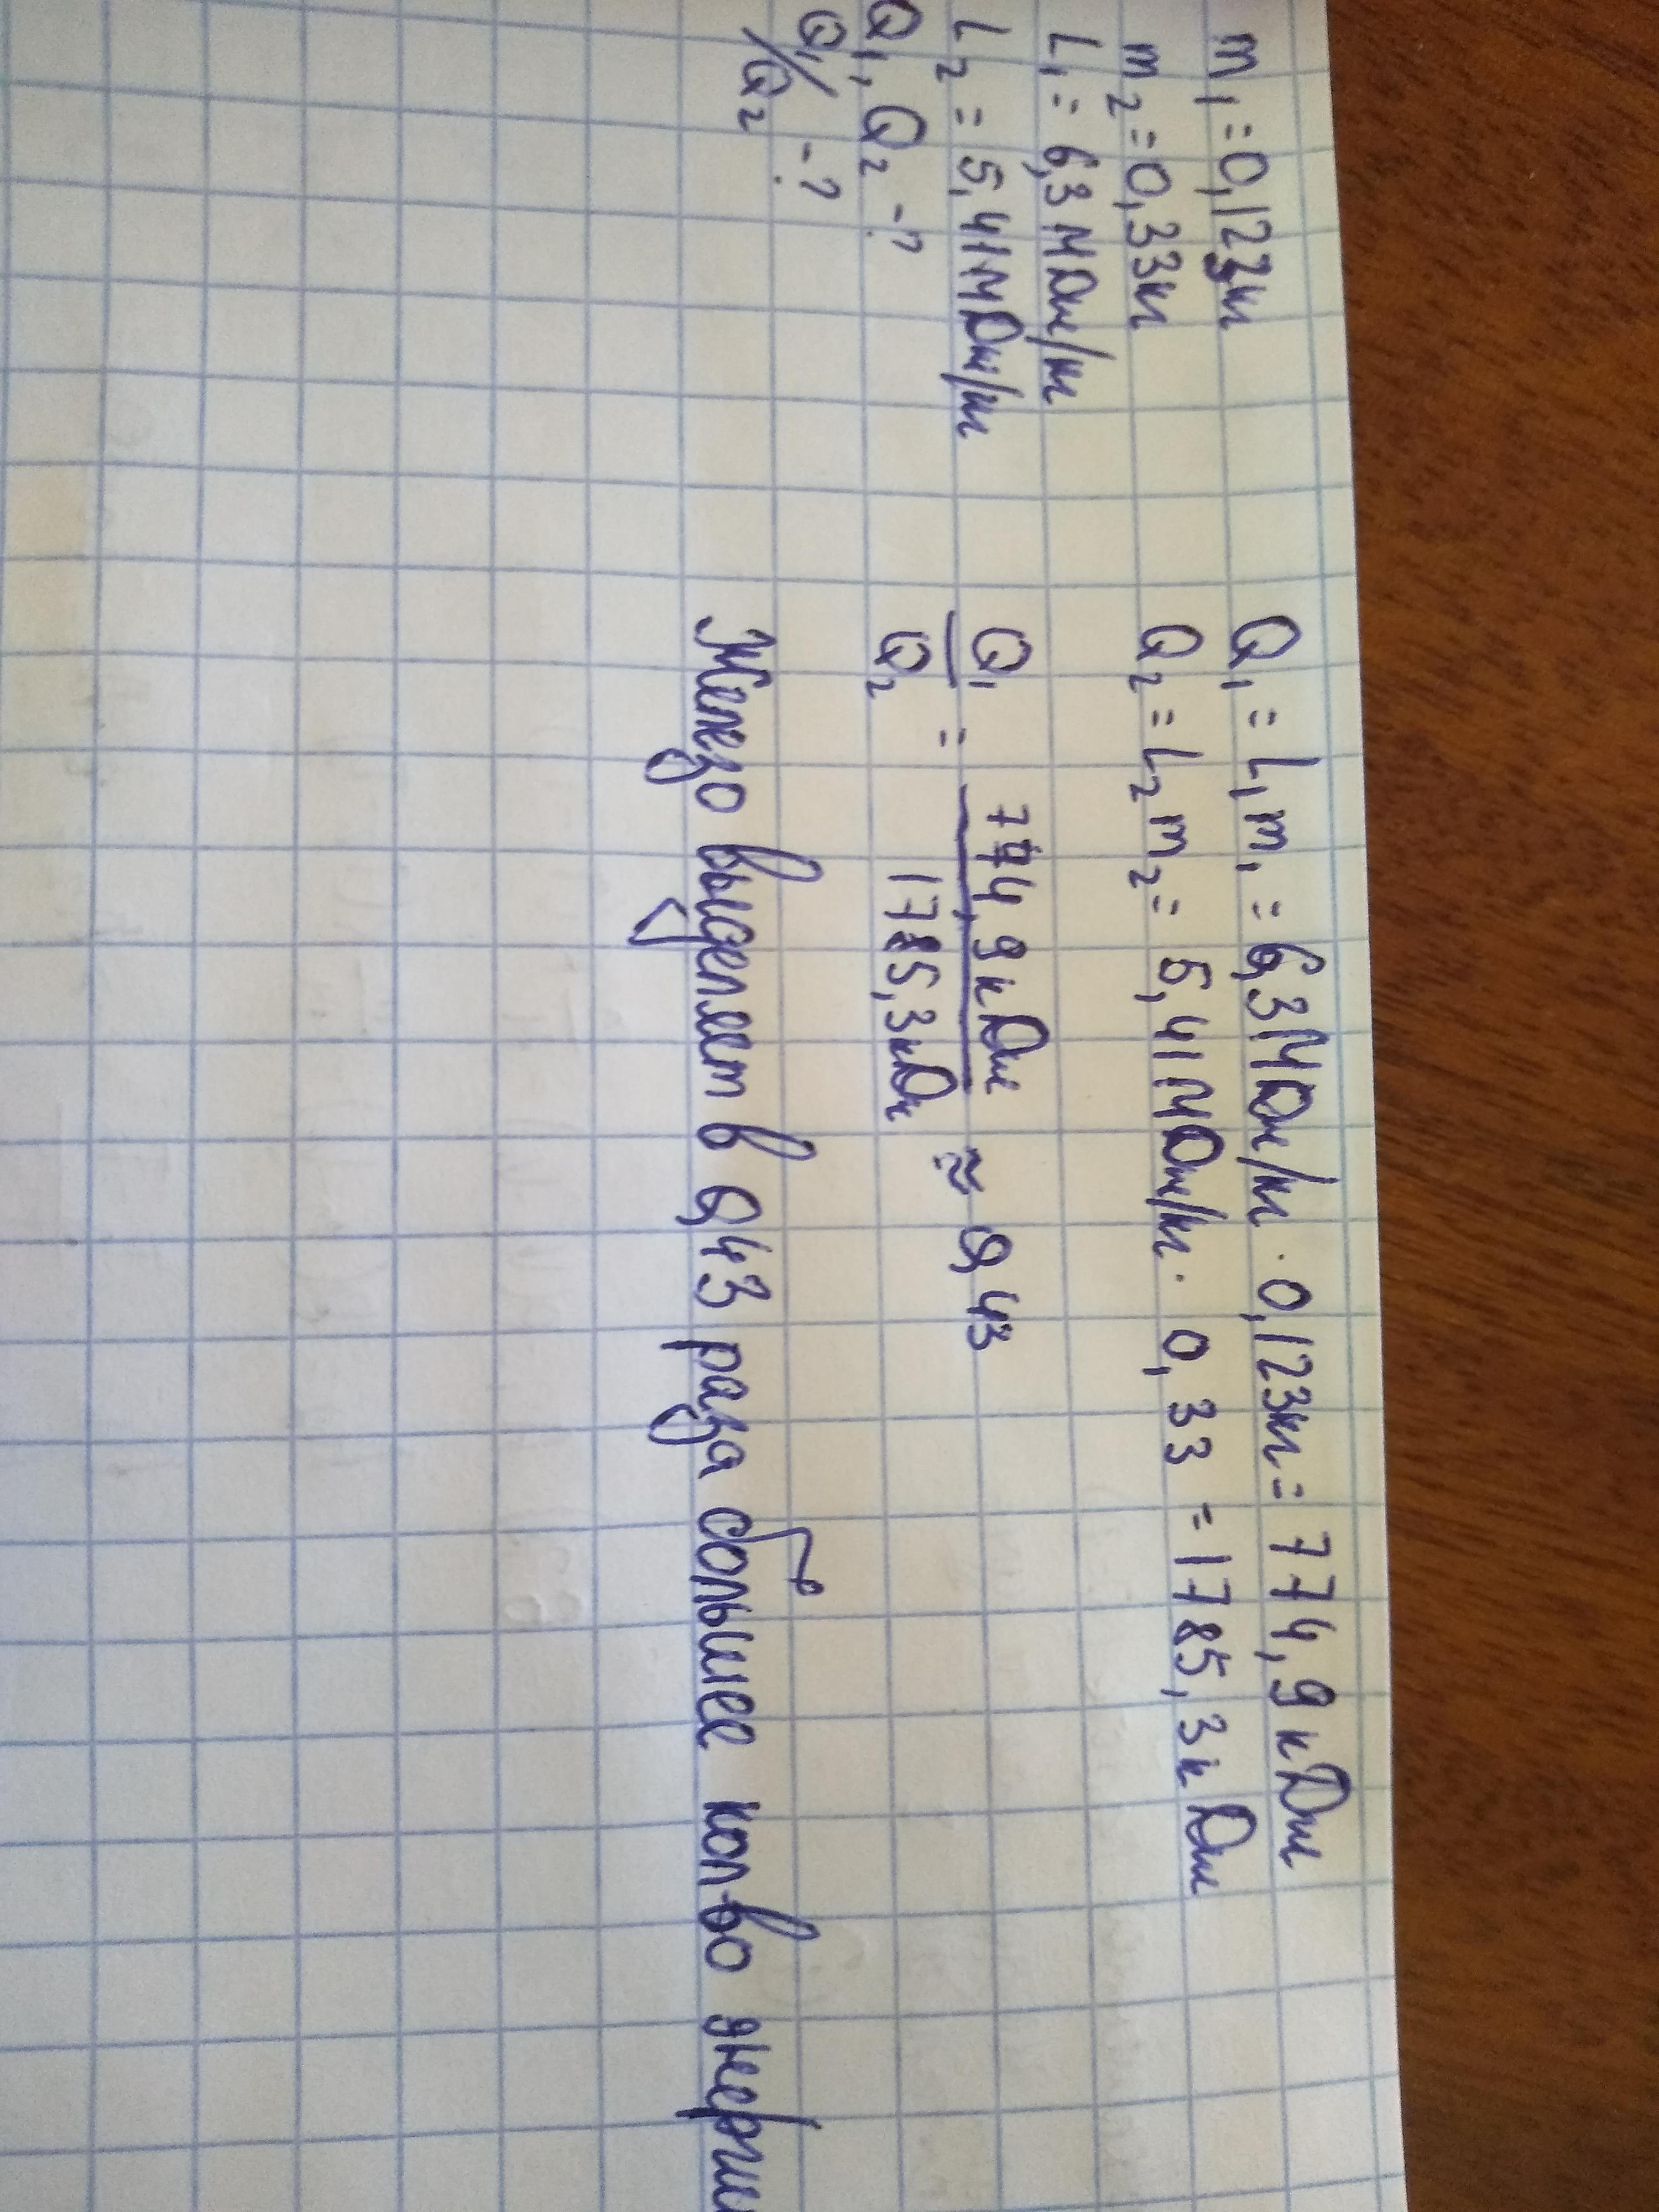 m₁ = 0,123кг
m₂ = 0,33кг
L₁ = 6,3 МДж/кг
L₂ = 5,41 МДж/кг
Q₁, Q₂ - ?
Q₁/Q₂ - ?
Q₁ = L₁m₁ = 6,3МДж/кг · 0,123кг = 774,9 кДж
Q₂ = L₂m₂ = 5,41 МДж/кг · 0,33 = 1785,3 кДж
Q₁/Q₂ = 774,9 кДж/1785,3 кДж ≈ 0,43
Железо выделяет в 0,43 раза большее кол-во энергии